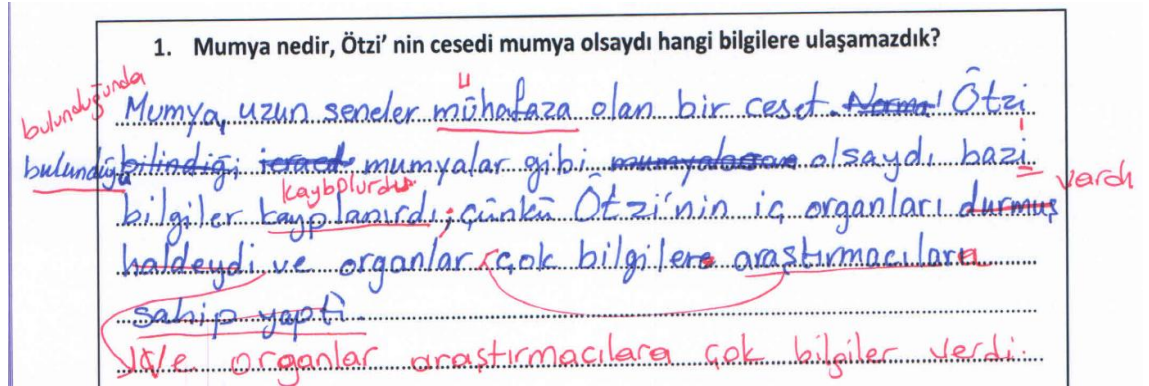 1. Mumya nedir, Ötzi' nin cesedi mumya olsaydı hangi bilgilere ulaşamazdık?
bulunduğunda
u
Mumya, uzun seneler mühafaza olan bir ceset. Norma! Ötzi
bulunduğu bilindiği mumyalar gibi olsaydı bazi
kaybolurdu vardı
bilgiler kayplanırdı, çünkü Ötzi'nin iç organları durmuş
haldeydi ve organlar çok bilgilere araştırmacılara
sahip yaptı.
Ve organlar araştırmacılara çok bilgiler verdi.